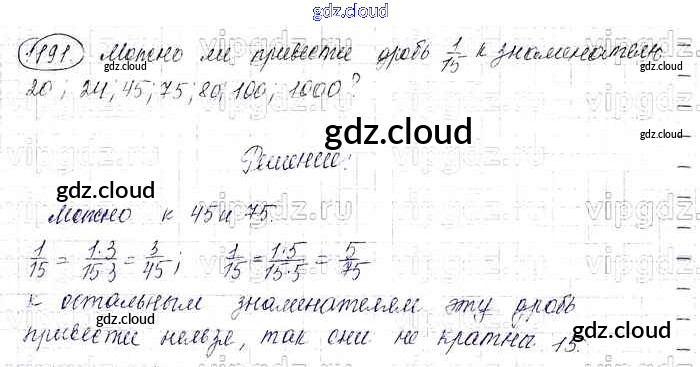 gdz.cloud
1191. Можно ли привести дробь 1/15 к знаменателю
20; 24; 45; 75; 80; 100; 1000?
gdz.cloud
Решение:
gdz.cloud
Можно к 45 и 75.
gdz.cloud
1/15 = 1·3/15·3 = 3/45; 1/15 = 1·5/15·5 = 5/75
gdz.cloud
К остальным знаменателям эту дробь
привести нельзя, так они не кратны 15.
gdz.cloud
gdz.cloud
vipgdz.ru